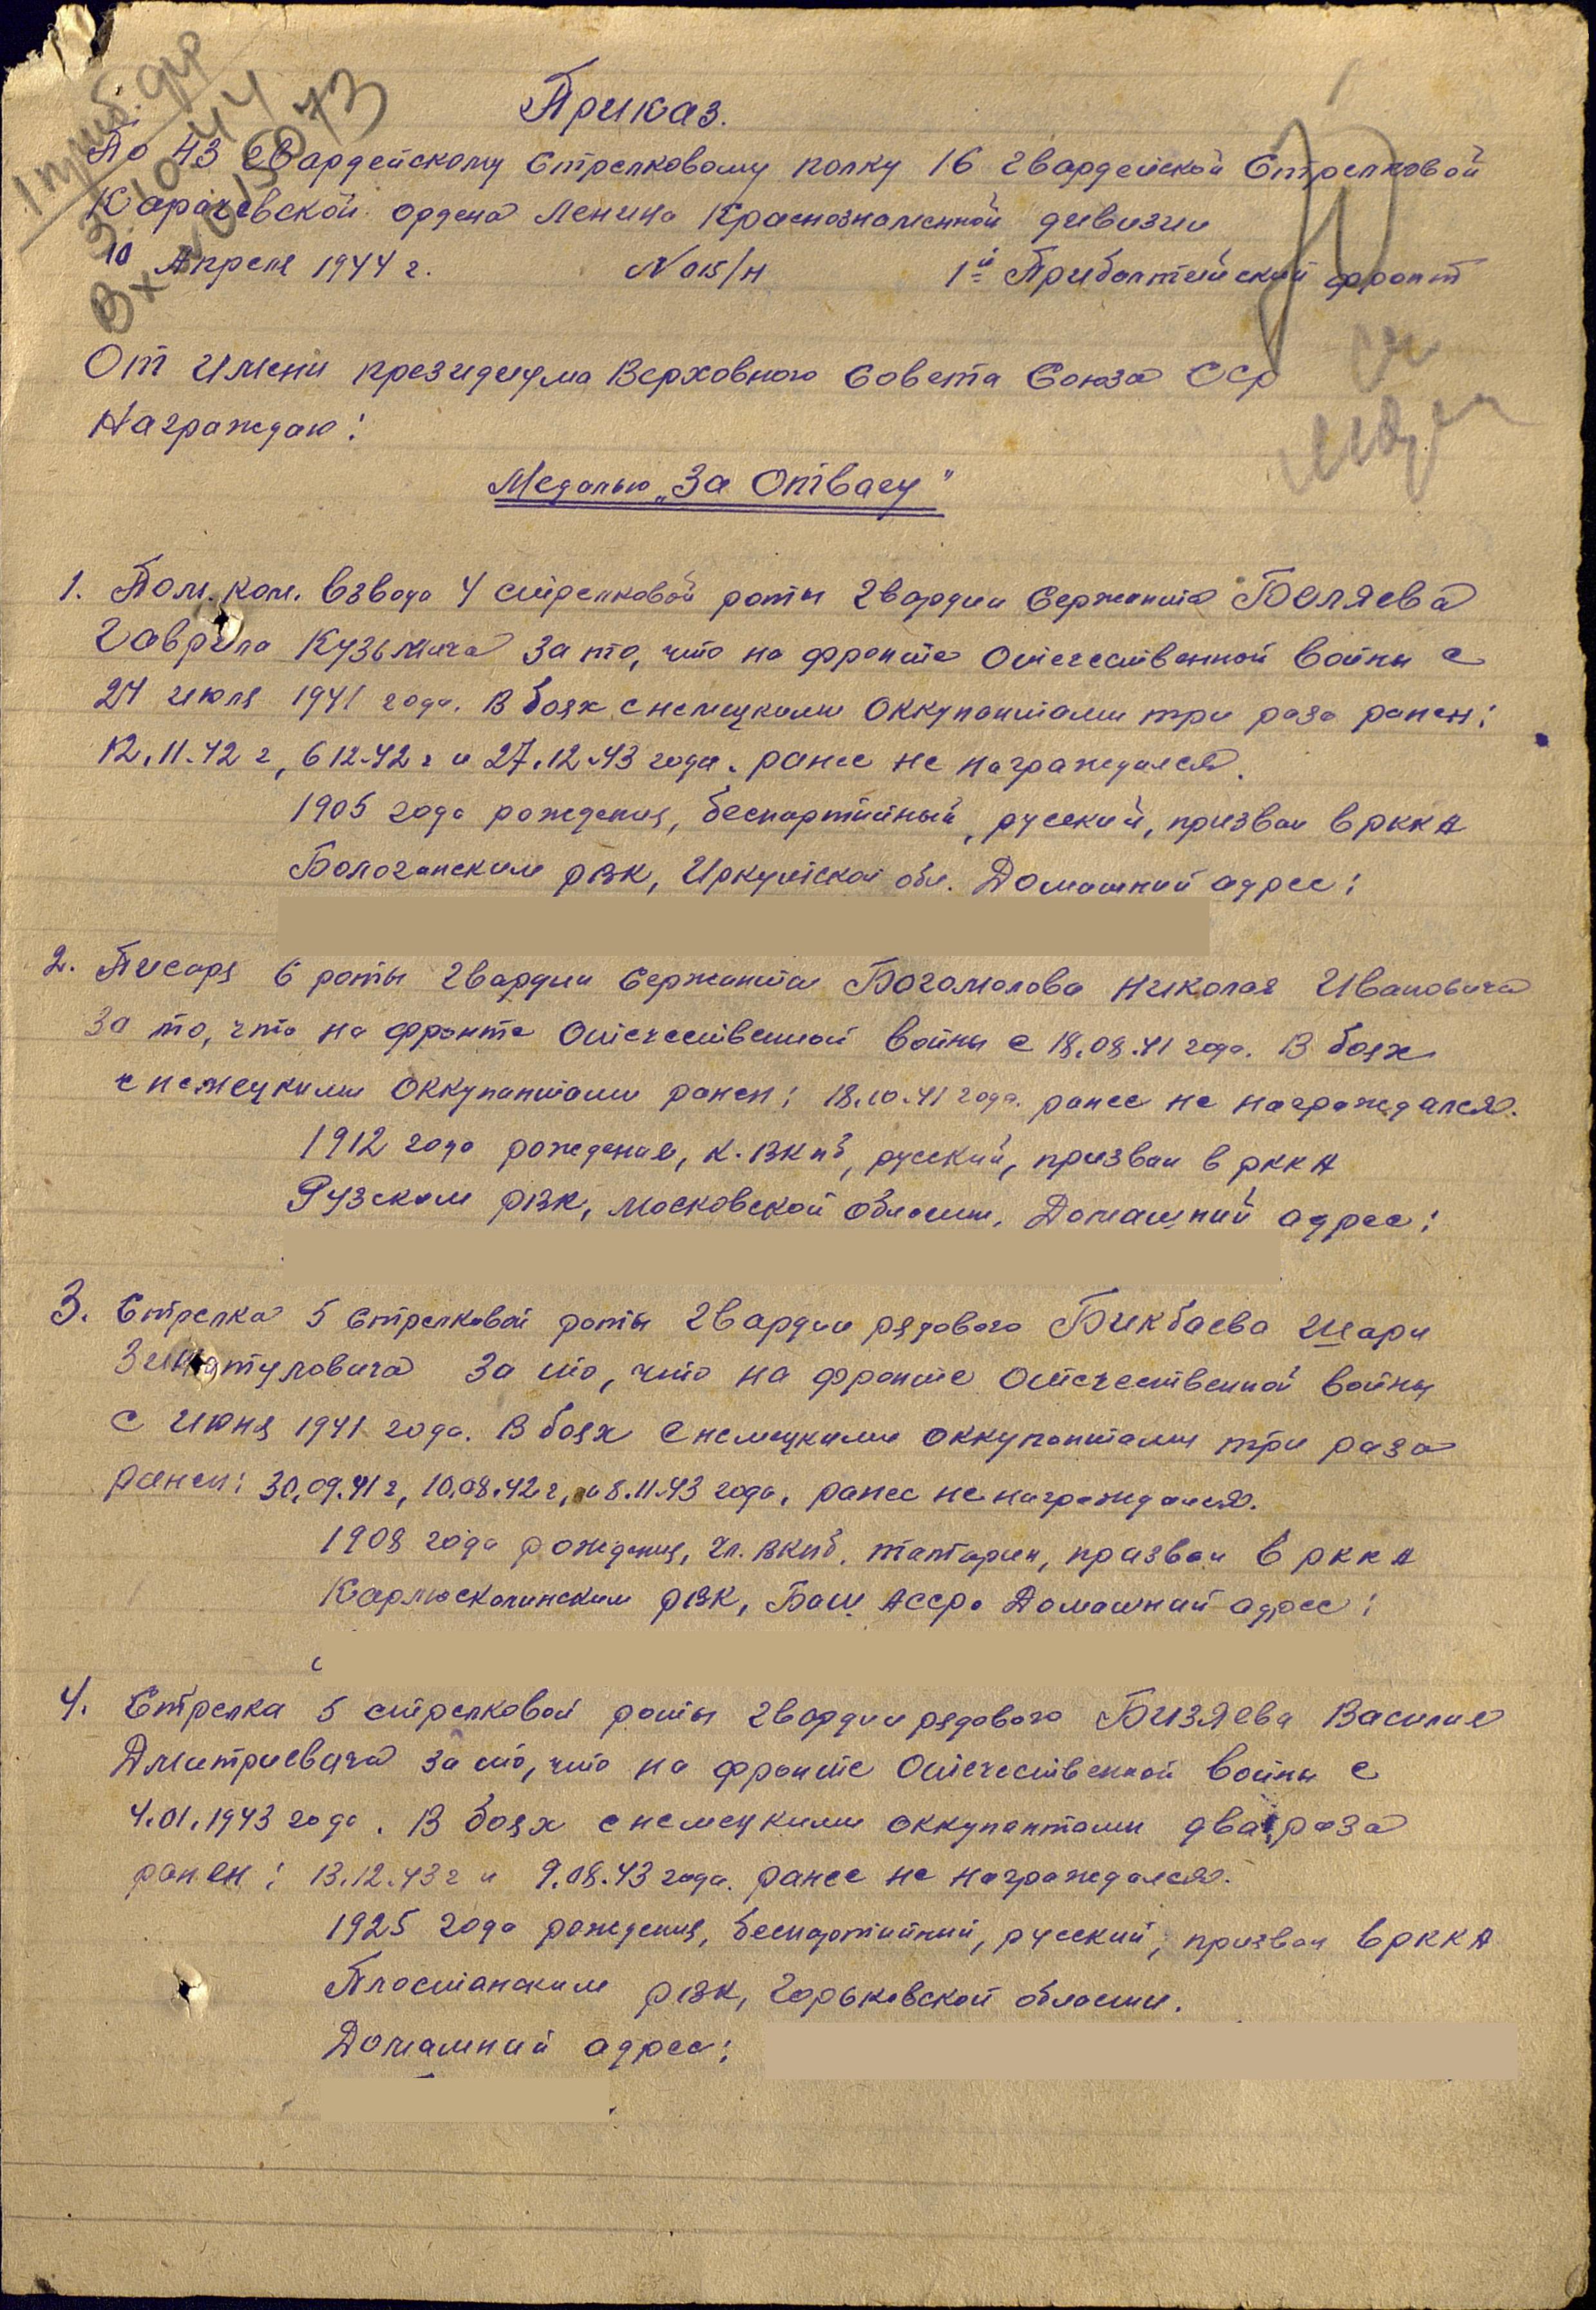 1 приб. фр
3.10.44
Вх № 015073
Приказ.
По 43 Гвардейскому Стрелковому полку 16 Гвардейской Стрелковой
Карачевской ордена Ленина Краснознаменной дивизии
10 Апреля 1944 г. № 015/н 1й Прибалтийский фронт
От имени президиума Верховного Совета Союза ССР
Награждаю:
Медалью „За Отвагу"
1. Пом. ком. взвода 4 стрелковой роты Гвардии Сержанта Беляева
Гаврила Кузьмича За то, что на фронте Отечественной войны с
24 июля 1941 года. В боях с немецкими оккупантами три раза ранен:
12.11.42 г, 6 12.42 г и 27.12.43 года. ранее не награждался.
1905 года рождения, беспартийный, русский, призван в РККА
Бологанским РВК, Иркутской обл. Домашний адрес:
2. Писаря 6 роты Гвардии Сержанта Богомолова Николая Ивановича
За то, что на фронте Отечественной войны с 18.08.41 года. В боях
с немецкими оккупантами ранен: 18.10.41 года. ранее не награждался.
1912 года рождения, к. ВКПб, русский, призван в РККА
Рузским РВК, Московской области. Домашний адрес:
3. Стрелка 5 Стрелковой роты Гвардии рядового Бикбаева Шари
Зинатуловича За то, что на фронте Отечественной войны
с июня 1941 года. В боях с немецкими оккупантами три раза
ранен: 30.09.41 г, 10.08.42 г, и 8.11.43 года, ранее не награждался.
1908 года рождения, чл. ВКПб, татарин, призван в РККА
Карлюскалинским РВК, Баш. АССР. Домашний адрес:
4. Стрелка 5 стрелковой роты Гвардии рядового Бизяева Василия
Дмитриевича за то, что на фронте Отечественной войны с
4.01.1943 года. В боях с немецкими оккупантами два раза
ранен: 13.12.43 г и 9.08.43 года. ранее не награждался.
1925 года рождения, беспартийный, русский, призван в РККА
Пластанским РВК, Горьковской области.
Домашний адрес: